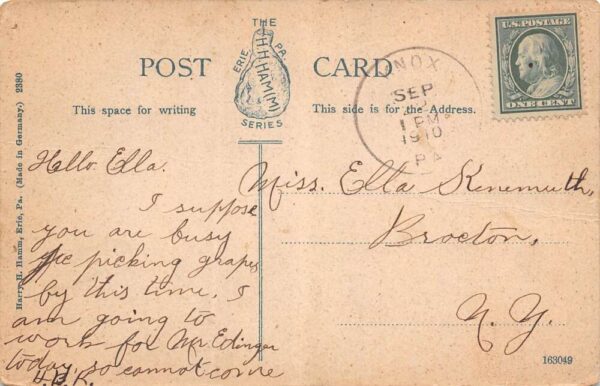 POST CARD
THE
H.H.HAM(M)
ERIE, PA.
SERIES
This space for writing
This side is for the Address.
U.S. POSTAGE
ONE CENT
KNOX
SEP
1 PM
1910
PA
Harry H. Hamm, Erie, Pa. (Made in Germany.) 2380
Hello Ella.
I suppose
you are busy
picking grapes
by this time. I
am going to
work for Mr Edinger
today, so cannot come
H.B.K.
Miss. Ella Kenemuth,
Brocton,
N.Y.
163049